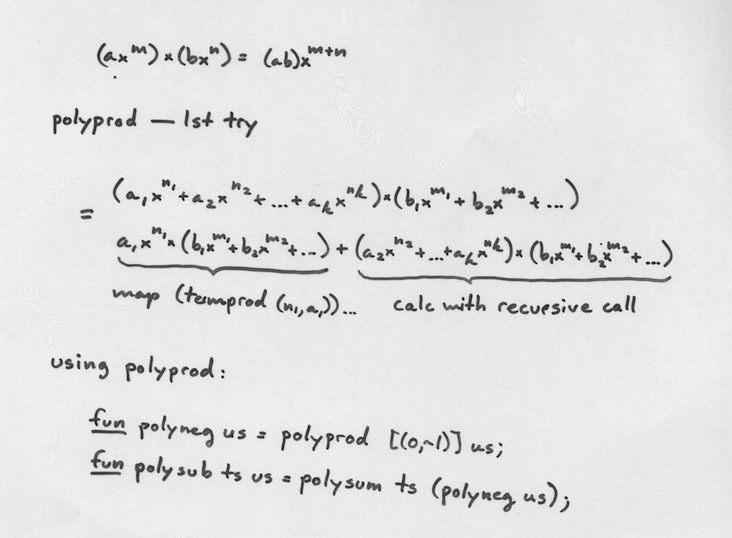 (axᵐ) × (bxⁿ) = (ab)xᵐ⁺ⁿ
polyprod — 1st try
(a₁xⁿ¹ + a₂xⁿ² + ... + aₖxⁿᵏ) × (b₁xᵐ¹ + b₂xᵐ² + ...)
=
a₁xⁿ¹ × (b₁xᵐ¹ + b₂xᵐ² + ...) + (a₂xⁿ² + ... + aₖxⁿᵏ) × (b₁xᵐ¹ + b₂xᵐ² + ...)
map (termprod (n₁,a₁))... calc with recursive call
using polyprod:
fun polyneg us = polyprod [(0,~1)] us;
fun polysub ts us = polysum ts (polyneg us);